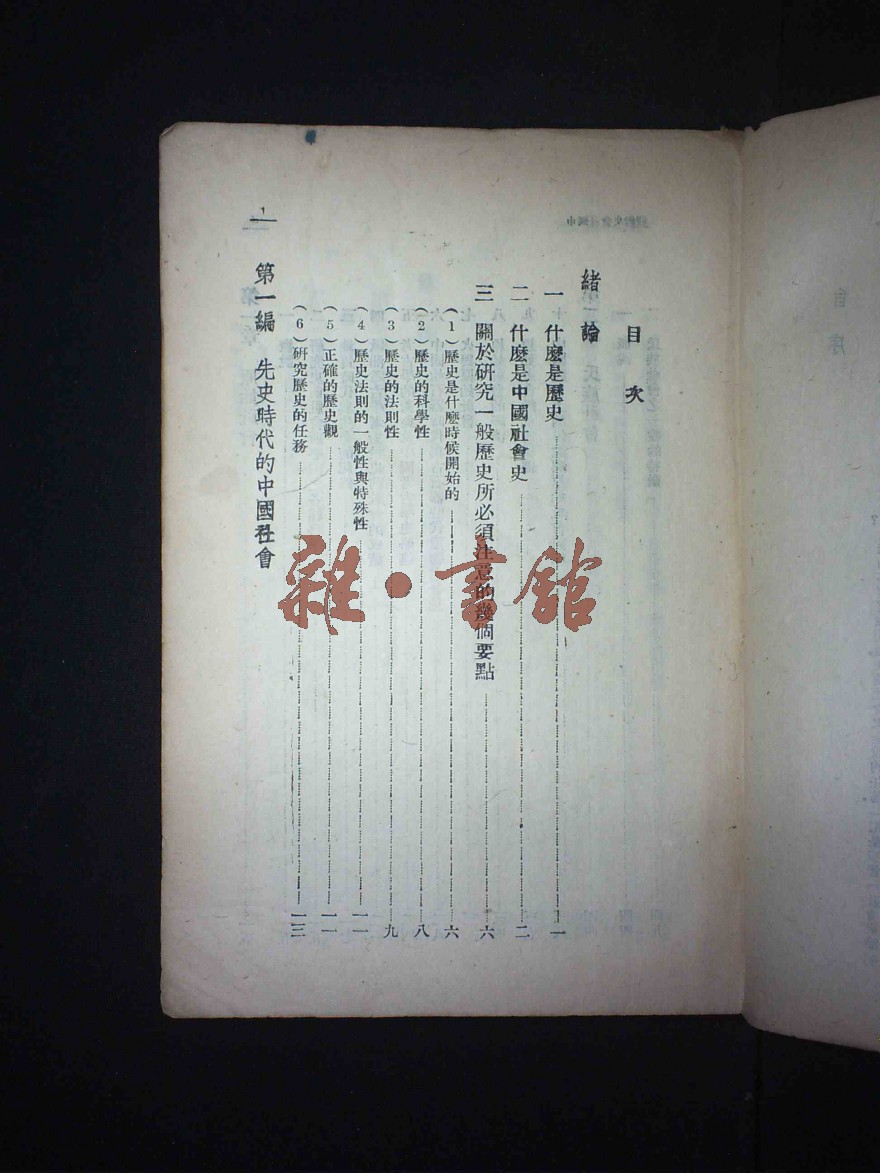 目次
緒論
一 什麼是歷史 一
二 什麼是中國社會史 二
三 關於研究一般歷史所必須注意的幾個要點 六
(1)歷史是什麼時候開始的 六
(2)歷史的科學性 八
(3)歷史的法則性 九
(4)歷史法則的一般性與特殊性 一一
(5)正確的歷史觀 一一
(6)研究歷史的任務 一三
第一編 先史時代的中國社會
1
雜·書館
自序